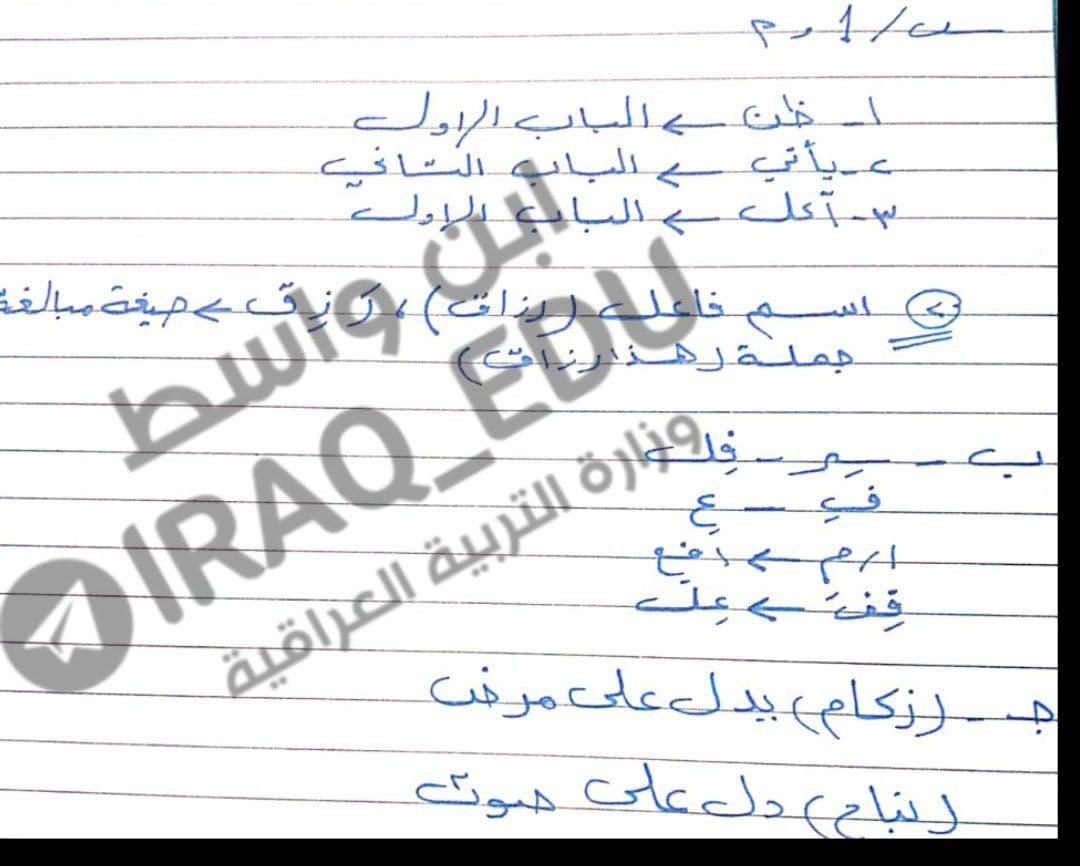 س/1 م
١- ظن ← الباب الاول
٢- يأتي ← الباب الثاني
٣- آكل ← الباب الاول
٢) اسم فاعل (رزاق)، رَزِق ← صيغة مبالغة
جملة (هذا رزاق)
ب - سِر - فِل
فِ - عِ
ارم ← افع
قِف ← عِل
جـ - (زكام) يدل على مرض
(نباح) دل على صوت
ابن واسط
IRAQ_EDU
وزارة التربية العراقية